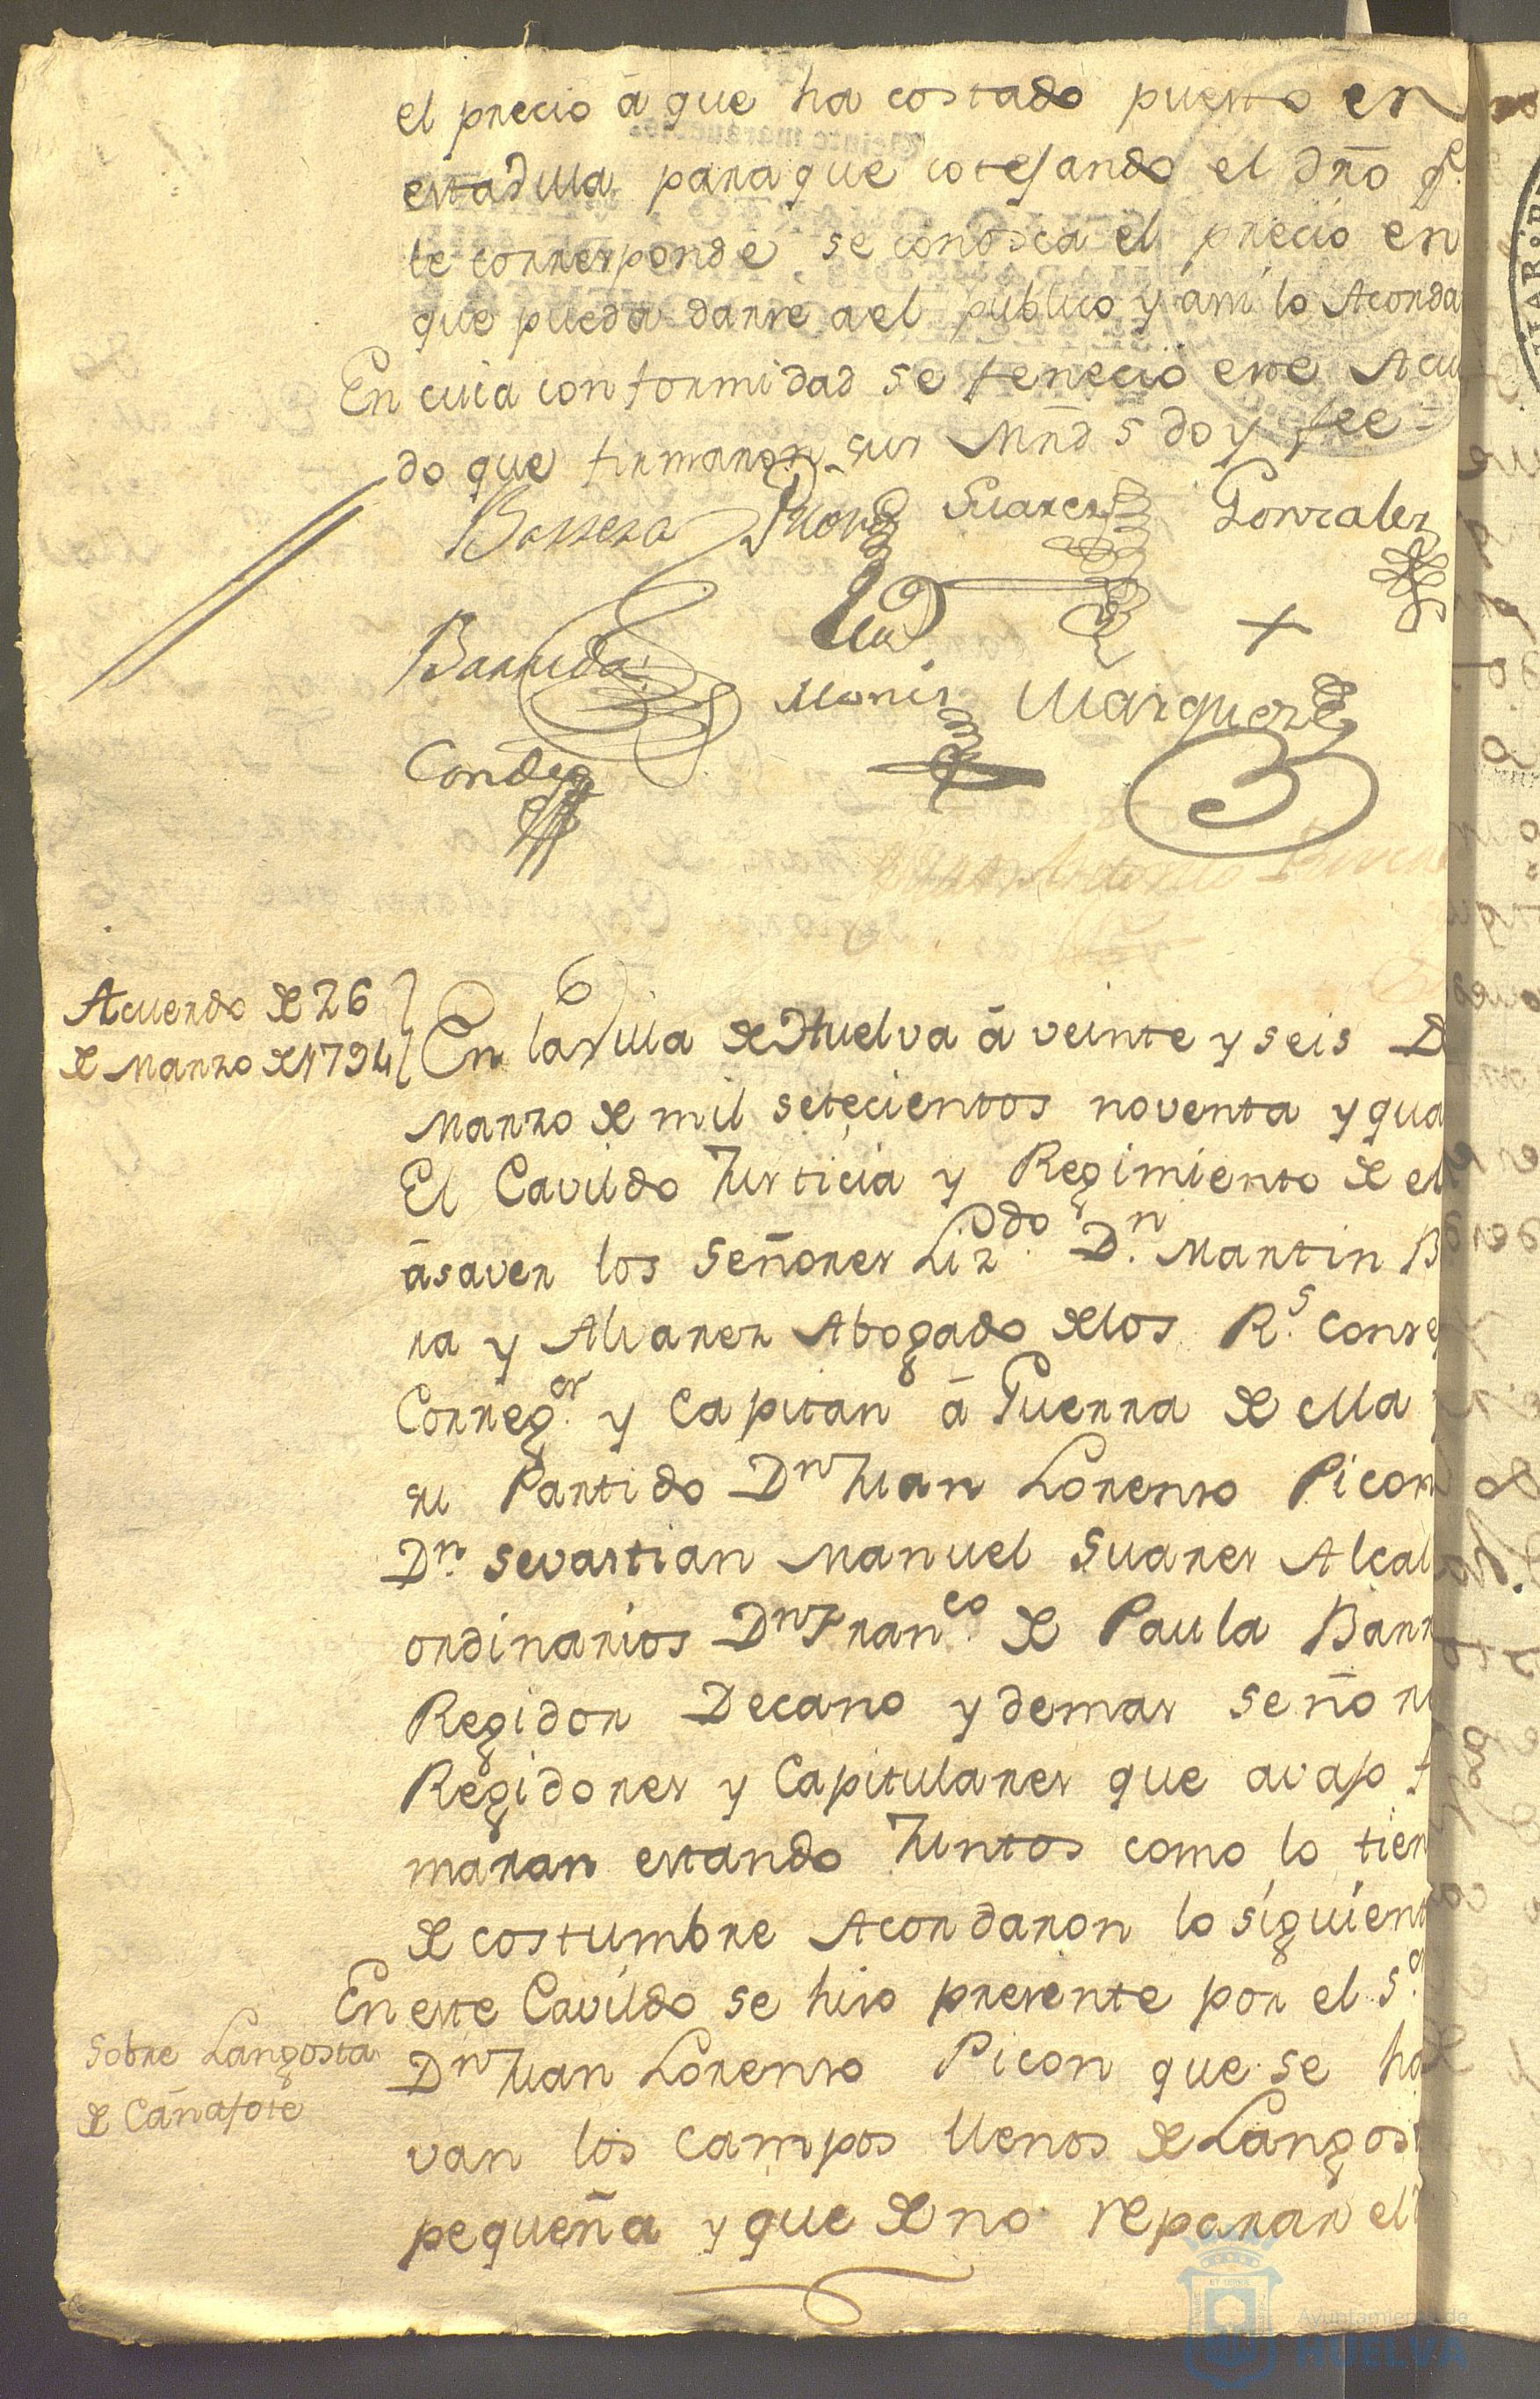 el precio â que ha costado puesto en
esta Villa para que cotejando el dr̃o q.e
le corresponde se conosca el precio en
que pueda darse a el publico y assi lo Acorda
En cuia conformidad se feneció este Acu
do que firmaron sus Mr̃ds doy fee =
Barrera Picon Suarez Gonzalez
Barreda Monis Marquez
Condeg
Acuerdo de 26
de Marzo de 1794
En la Villa de Huelva â veinte y seis D
Marzo de mil setecientos noventa y qua
El Cavildo Justicia y Regimiento de el
âsaver los Señores Liz.do D.n Martin B
ra y Alvarez Abogado delos R.s Conse
Correg.or y Capitan â Guerra de ella
su Partido Dn Juan Lorenso Picon
D.n Sevastian Manuel Suares Alcal
ordinarios Dn Fran.co de Paula Barr
Regidor Decano y demas Señor
Regidores y Capitulares que avajo f
maran estando Juntos como lo tien
de costumbre Acordaron lo siguient
En este Cavildo se hiso presente por el S.or
Sobre Langosta
de Cañafote
Dn Juan Lorenso Picon que se ha
van los campos llenos de Langost
pequeña y que de no reparar el
Ayuntamiento de
HUELVA